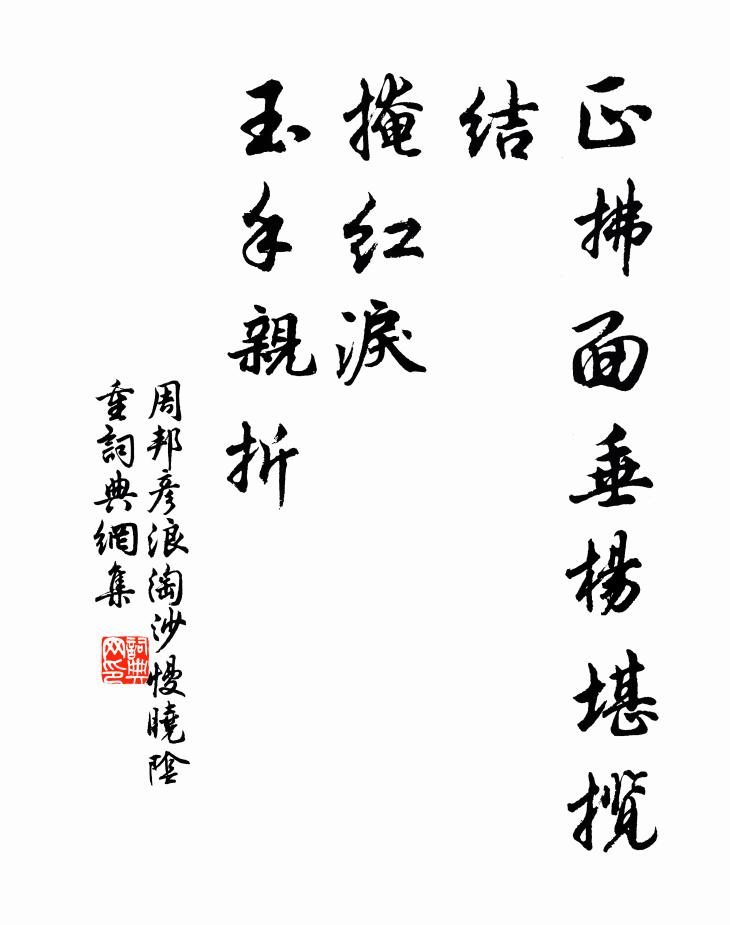 正拂面垂楊堪揽
结
掩红淚
玉手親折
周邦彦浪淘沙慢曉陰
重詞典網集
詞典
网印